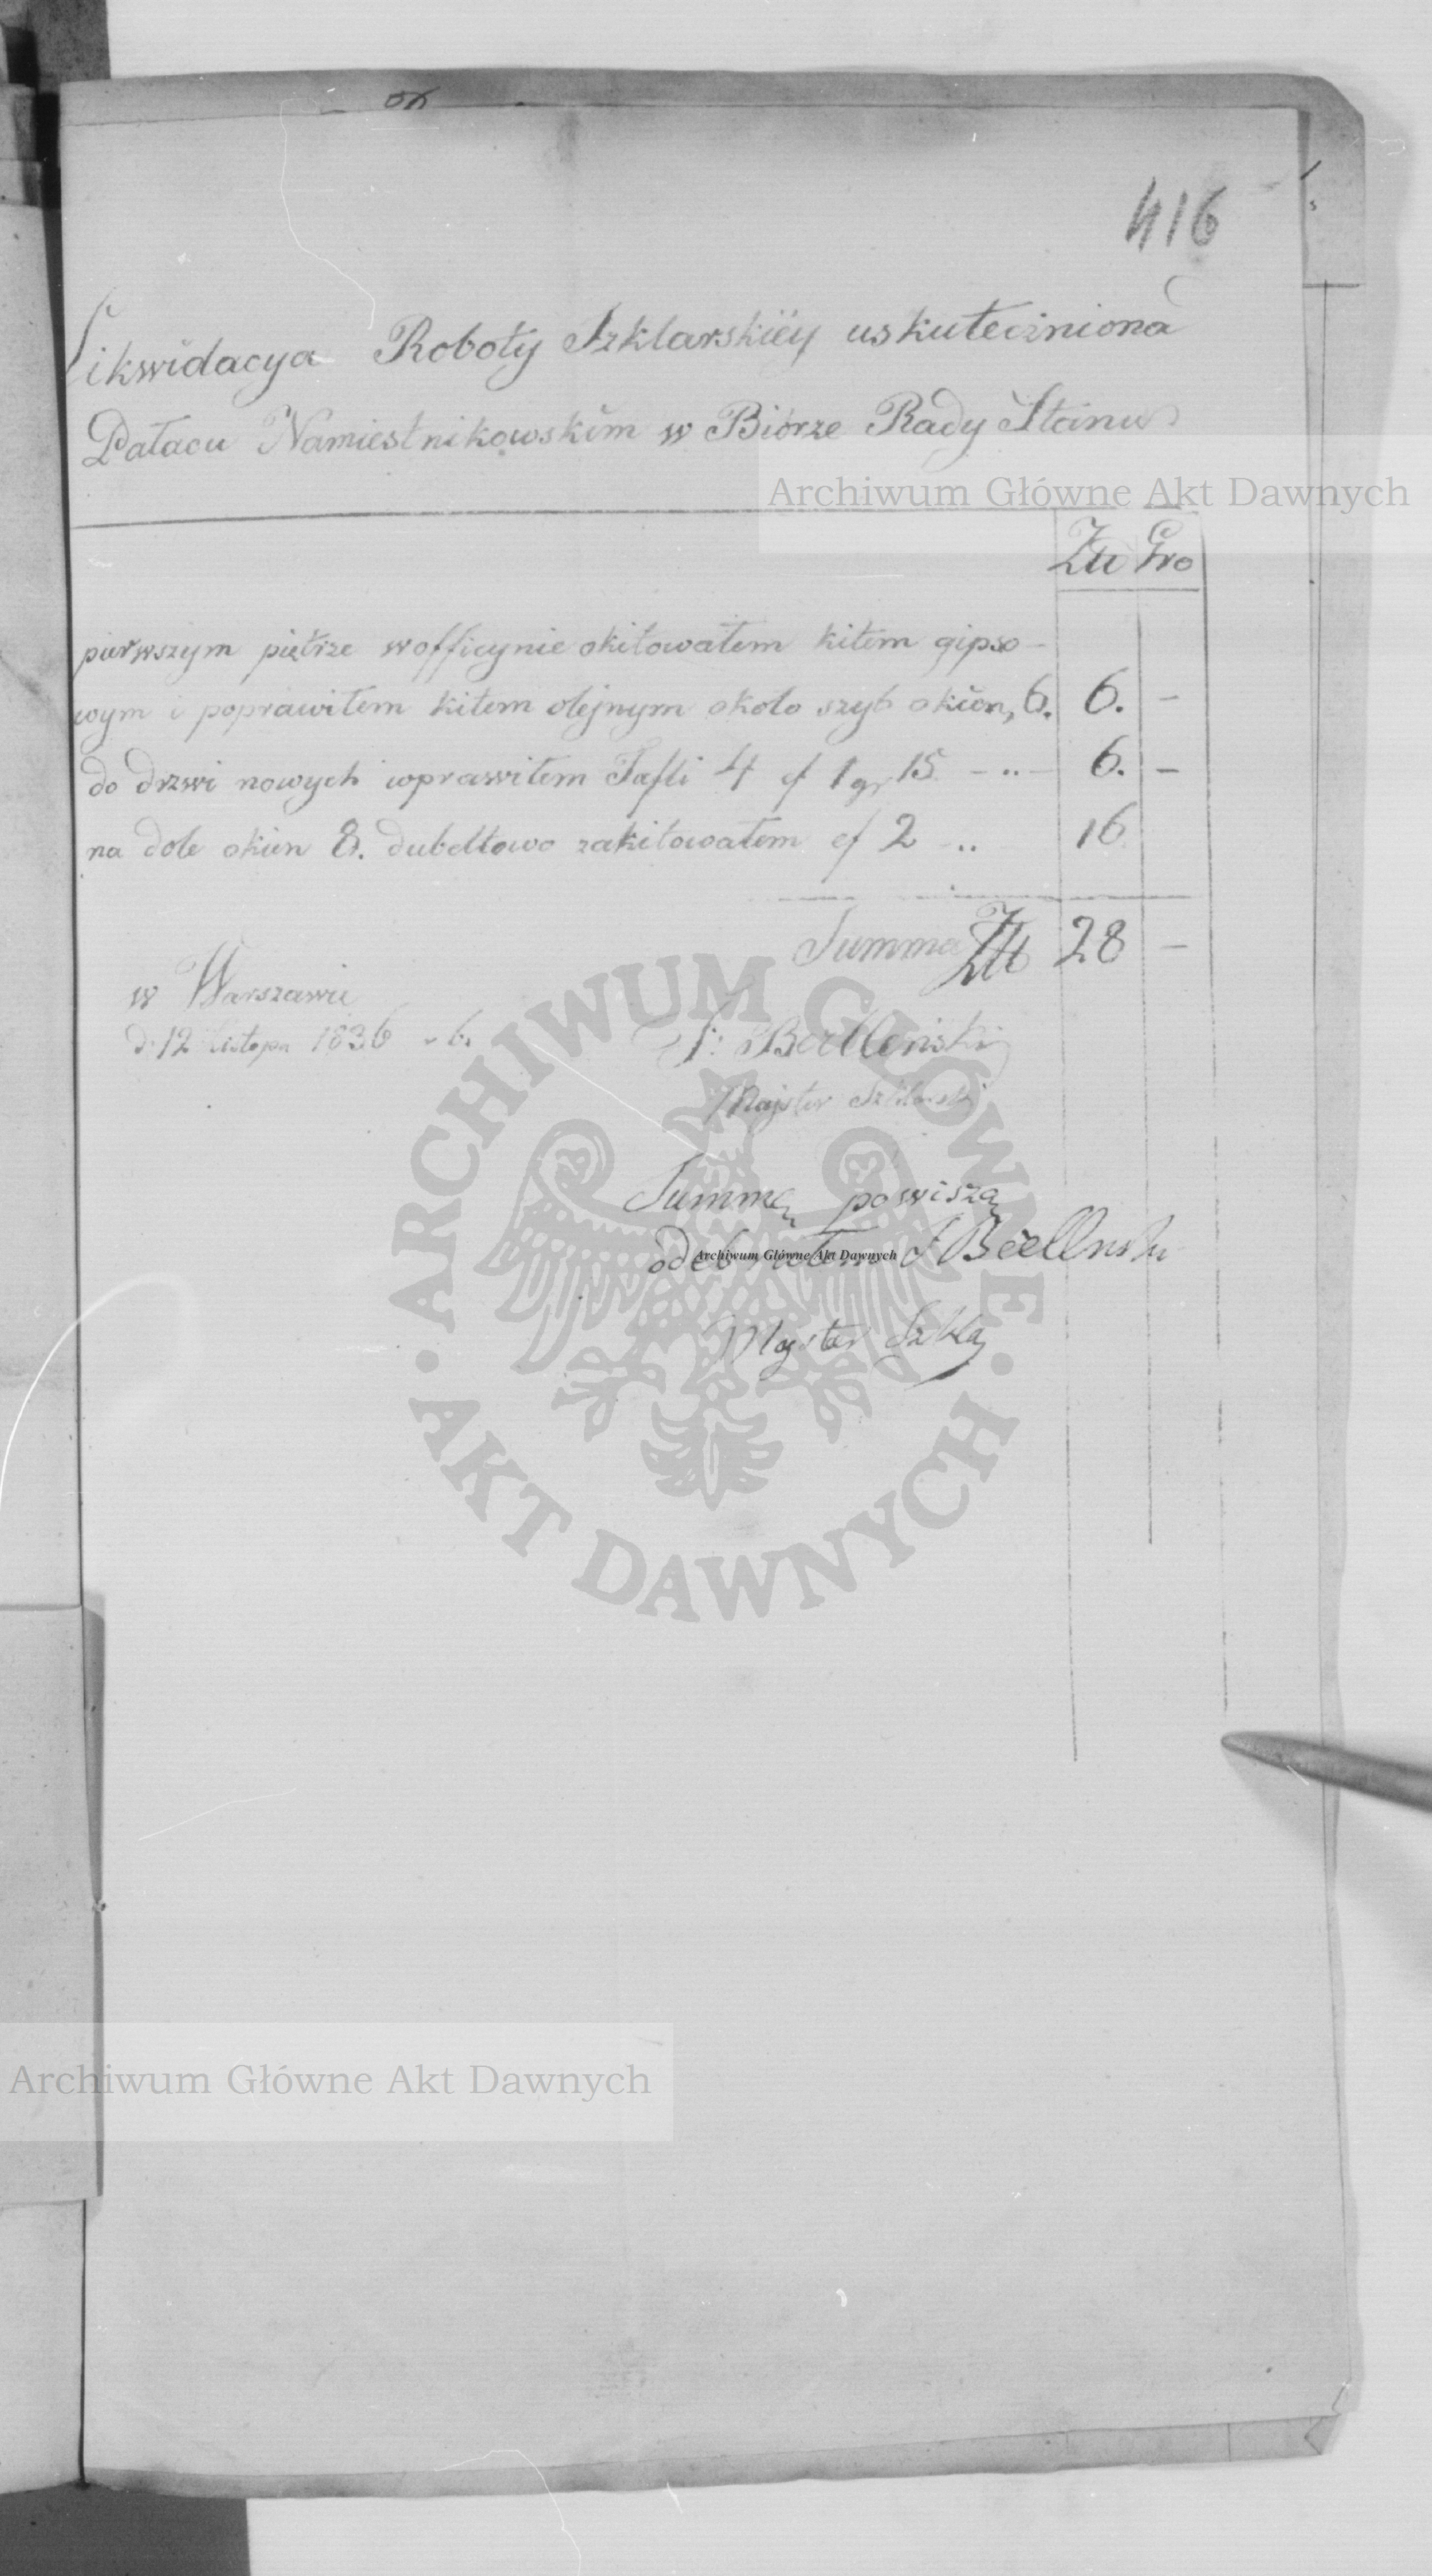 416
Likwidacya Roboty Szklarskiëy uskuteczniona
Pałacu Namiestnikowskim w Biórze Rady Stanu
Archiwum Główne Akt Dawnych
Złł Gro
pierwszym piętrze w officynie okitowałem kitem gipso-
wym i poprawiłem kitem olejnym około szyb okien, 6. 6. -
do drzwi nowych wprawiłem Tafli 4 cf 1 gr 15 - ,, - 6. -
na dole okien 8. dubeltowo zakitowałem cf 2 - ,, 16.
Summa Złł 28 -
w Warszawie
d. 12 listopa 1836 - 6.
Majster Szklarski
Summę powiszą
odebrałem
Majster Szkla
ARCHIWUM GŁÓWNE
AKT DAWNYCH
Archiwum Główne Akt Dawnych
Archiwum Główne Akt Dawnych